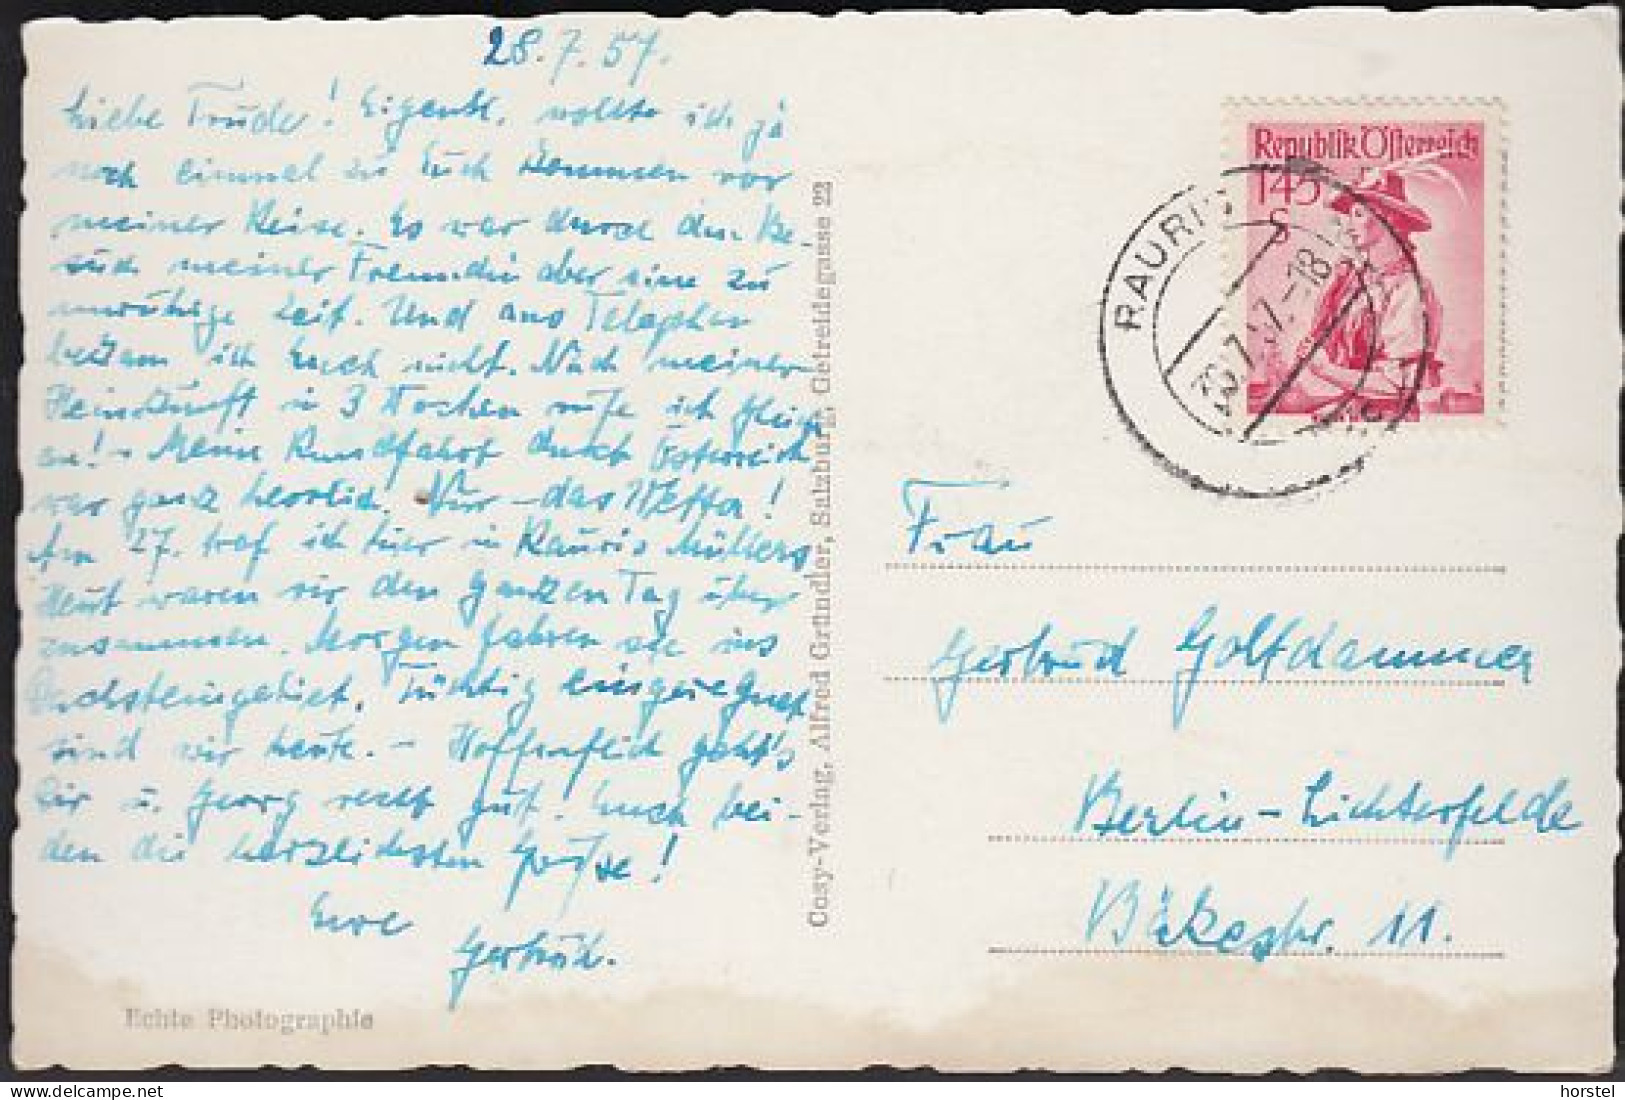 28.7.57.
Liebe Trude! Eigentl. wollte ich ja
noch einmal zu Euch kommen vor
meiner Reise. Es war durch den Be-
such meiner Freundin aber eine zu
unruhige Zeit. Und ans Telephon
bekam ich Euch nicht. Nach meiner
Heimkunft in 3 Wochen rufe ich gleich
an! - Meine Rundfahrt durch Österreich
war ganz herrlich. Nur - das Wetter!
Am 27. traf ich hier in Rauris Müllers
Heut waren wir den ganzen Tag über
zusammen. Morgen fahren sie ins
Dachsteingebiet. Tüchtig eingeregnet
sind wir heute. - Hoffentlich geht's
Dir u. Georg recht gut. Euch bei-
den die herzlichsten Grüße!
Eure
Gertrud.
Echte Photographie
Cosy-Verlag, Alfred Gründler, Salzburg, Getreidegasse 22
Republik Österreich
1 45
S
RAURIS
-18
Frau
Gertrud Golfdammer
Berlin-Lichterfelde
Bäkestr. 11.
horstel